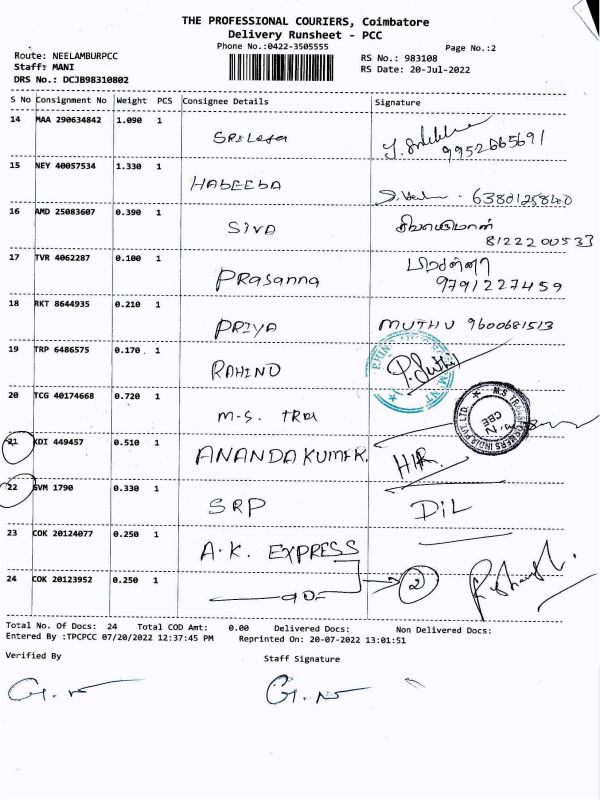 THE PROFESSIONAL COURIERS, Coimbatore
Delivery Runsheet - PCC
Phone No.:0422-3505555
Page No.:2
Route: NEELAMBURPCC
RS No.: 983108
Staff: MANI
RS Date: 20-Jul-2022
DRS No.: DCJB98310802
S No Consignment No Weight PCS Consignee Details Signature
14 MAA 290634842 1.090 1
9952665691
15 NEY 40057534 1.330 1 HABEEBA
6380125840
16 AMD 25083607 0.390 1 SIVA
8122200533
17 TVR 4062287 0.100 1 PRasanna
9791227459
18 RKT 8644935 0.210 1 PRIYA MUTHU 9600681513
19 TRP 6486575 0.170 1 RAHIND
20 TCG 40174668 0.720 1 M-S.
21 KDI 449457 0.510 1 ANANDAKUMAR. HR.
22 SVM 1790 0.330 1 SRP DiL
23 COK 20124077 0.250 1 A.K. EXPRESS
24 COK 20123952 0.250 1 -do- 2
Total No. Of Docs: 24 Total COD Amt: 0.00 Delivered Docs: Non Delivered Docs:
Entered By :TPCPCC 07/20/2022 12:37:45 PM Reprinted On: 20-07-2022 13:01:51
Verified By
Staff Signature